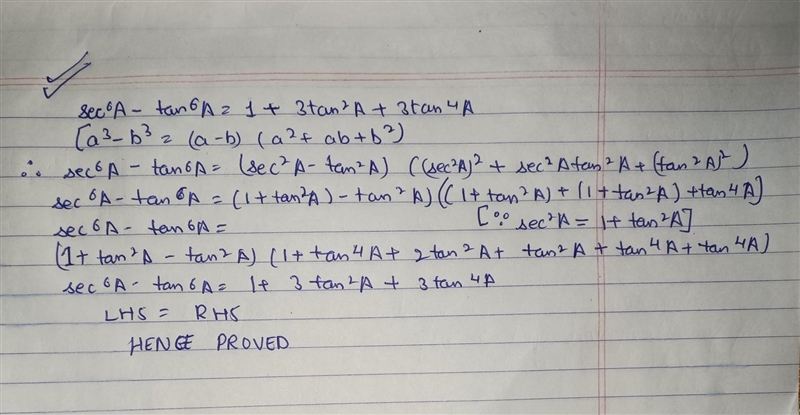 sec⁶A - tan⁶A = 1 + 3tan²A + 3tan⁴A
[a³-b³ = (a-b) (a²+ ab+b²)
∴ sec⁶A - tan⁶A = (sec²A - tan²A) ((sec²A)² + sec²Atan²A + (tan²A)²)
sec⁶A - tan⁶A = (1+tan²A) - tan²A) ((1+tan²A) + (1+tan²A) + tan⁴A]
sec⁶A - tan⁶A = [∵ sec²A = 1+tan²A]
(1+tan²A - tan²A) (1+tan⁴A + 2tan²A + tan²A + tan⁴A + tan⁴A)
sec⁶A - tan⁶A = 1+ 3tan²A + 3tan⁴A
LHS = RHS
HENCE PROVED